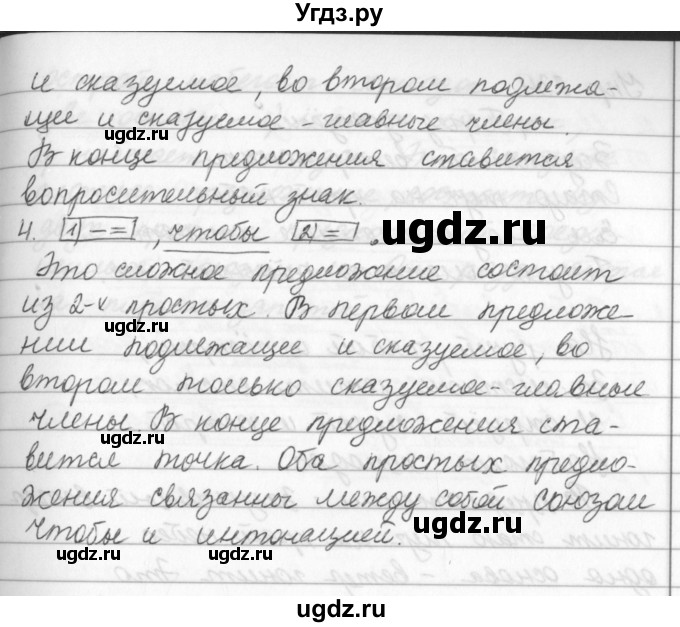 Угдз.ру
и сказуемое, во втором подлежа-
щее и сказуемое - главные члены.
В конце предложения ставится
вопросительный знак.
4. 1) - = , чтобы 2) = .
Это сложное предложение состоит
из 2-х простых. В первом предложе-
нии подлежащее и сказуемое, во
втором только сказуемое - главные
члены. В конце предложения ста-
вится точка. Оба простых предло-
жения связанны между собой союзом
чтобы и интонацией.
ugdz.ru
ugdz.ru
ugdz.ru
ugdz.ru
ugdz.ru
ugdz.ru
ugdz.ru
ugdz.ru
ugdz.ru
ugdz.ru
ugdz.ru
ugdz.ru